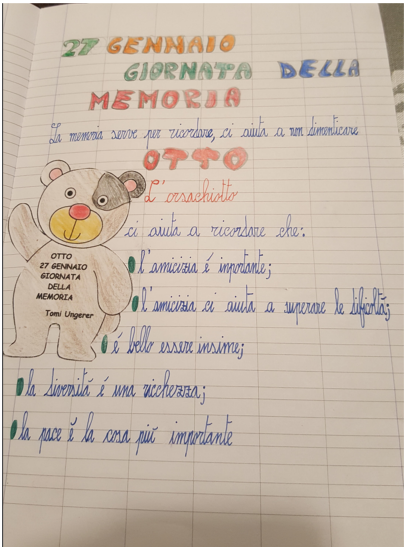 27 GENNAIO
GIORNATA DELLA
MEMORIA
La memoria serve per ricordare, ci aiuta a non dimenticare
OTTO
L'orsachiotto
ci aiuta a ricordare che:
OTTO
27 GENNAIO
GIORNATA
DELLA
MEMORIA
Tomi Ungerer
l'amicizia é inportante;
l'amicizia ci aiuta a superare le dificoltà;
é bello essere insime;
la diversità é una ricchezza;
la pace è la cosa più importante